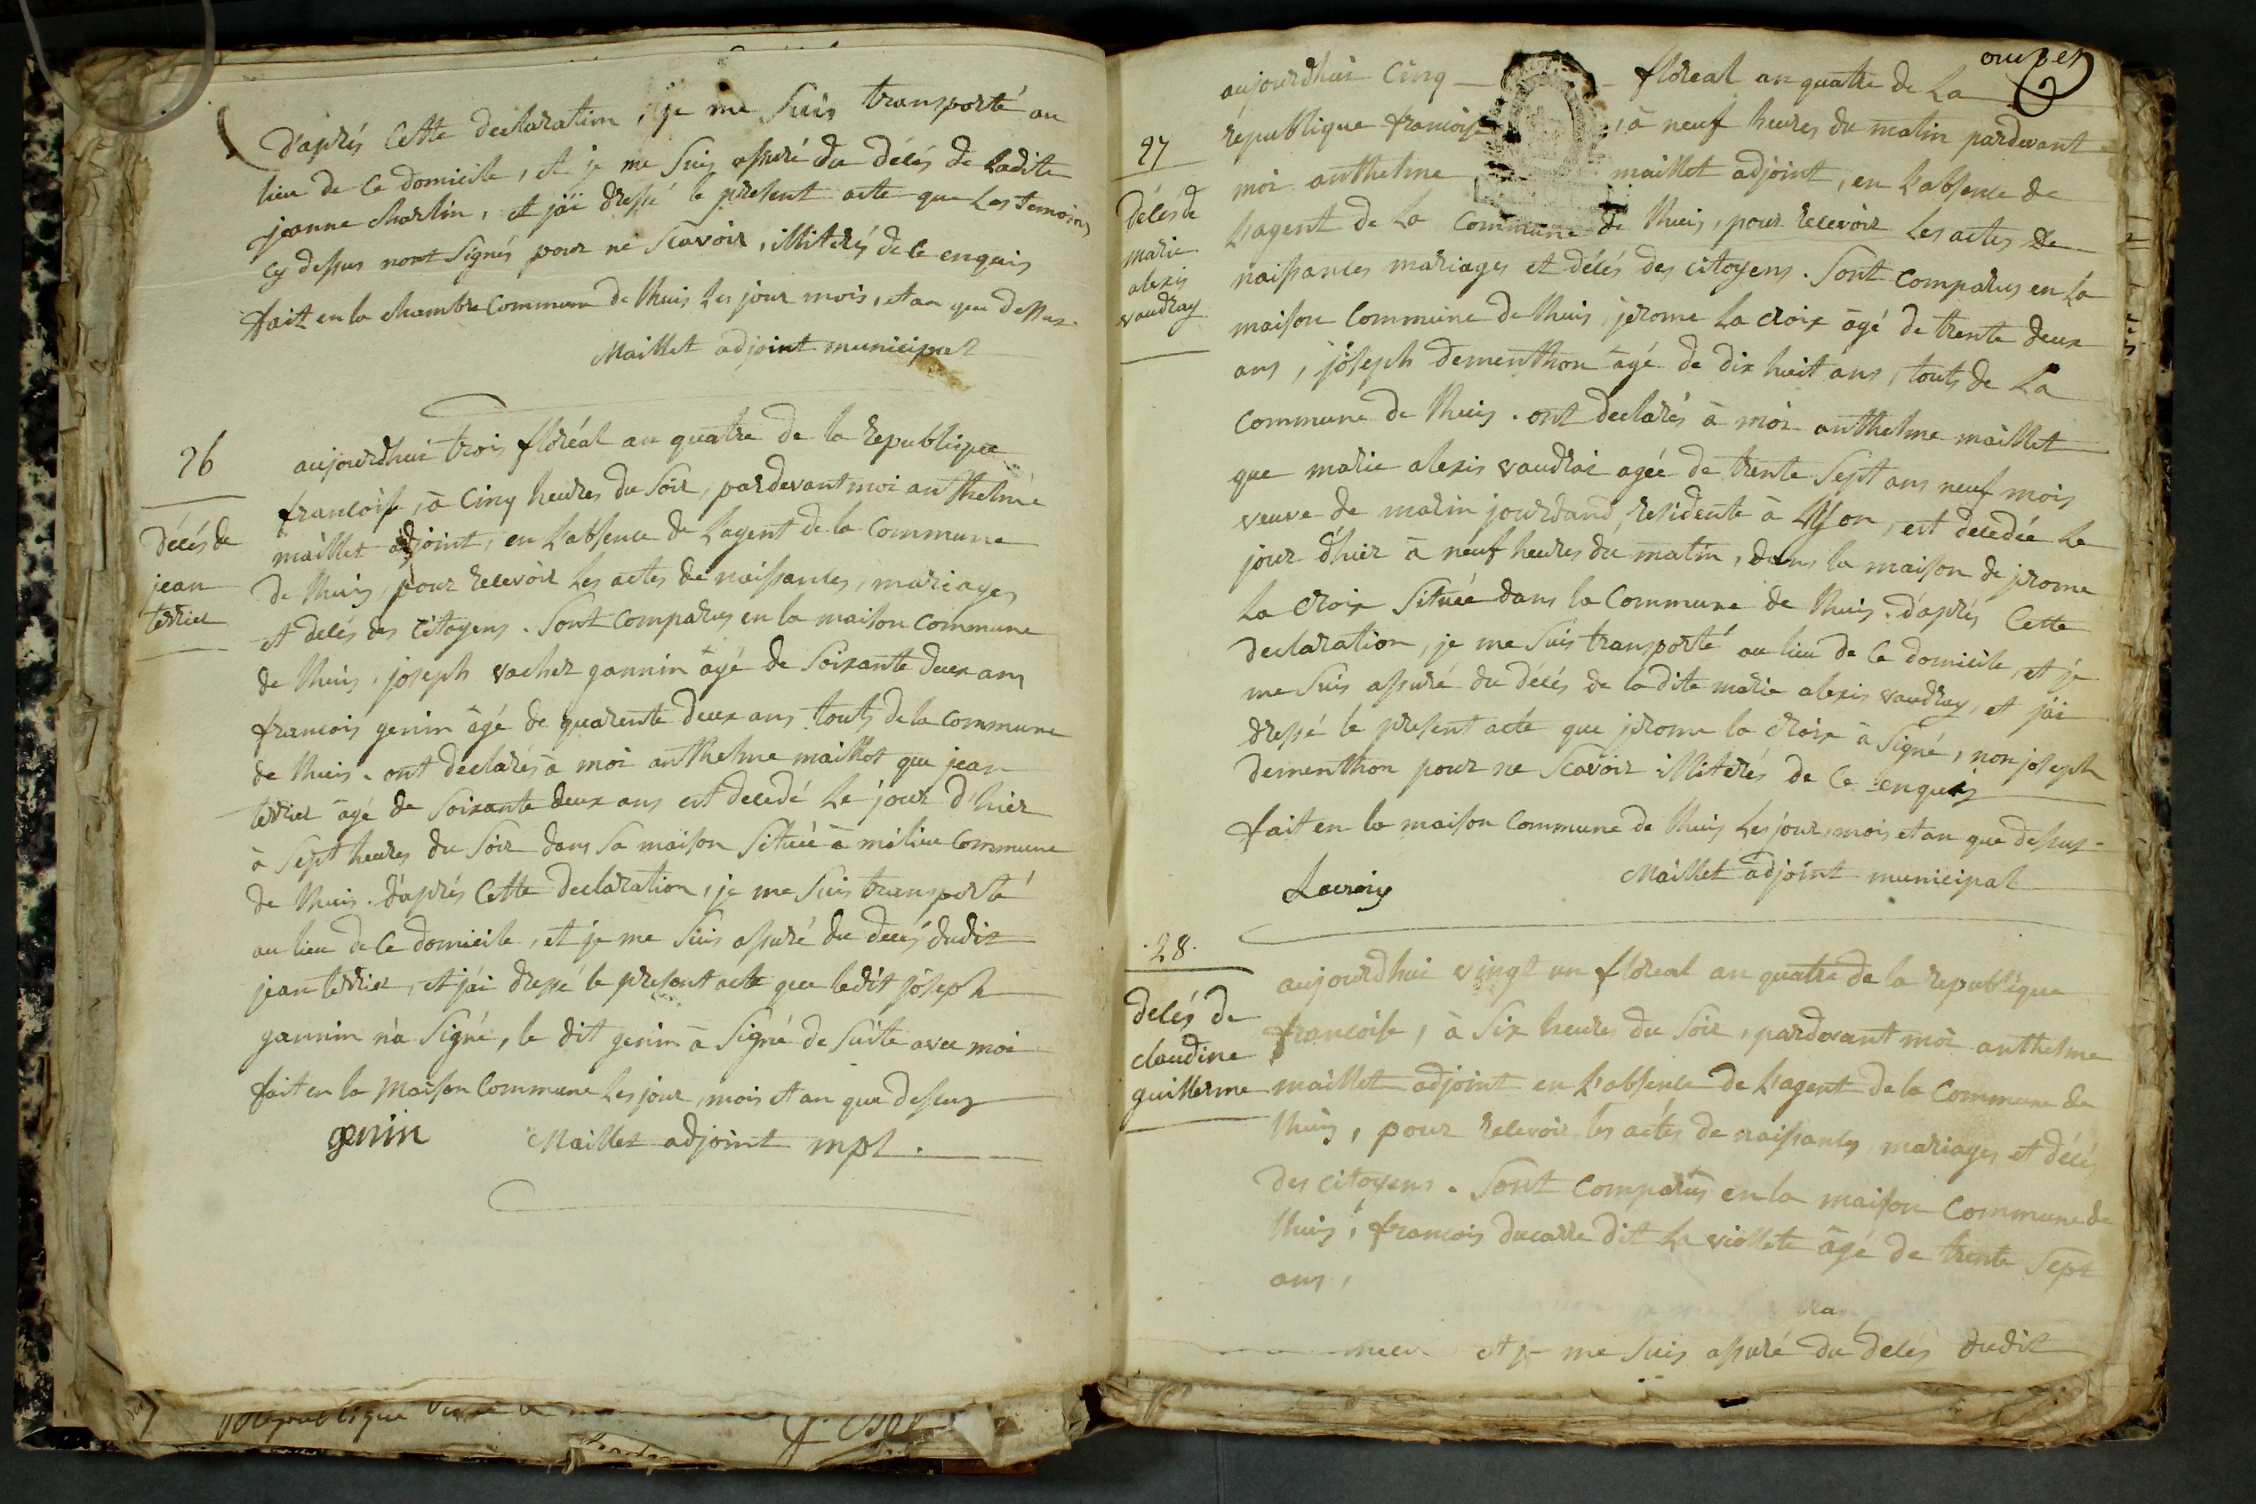 d'aprés Cette declaration, je me Suis transporté au
lieu de Ce domicile, et je me Suis assuré du décés de Ladite
jeanne charlin, et jai dressé le present acte que Les temoins
Cy dessus nont Signés pour ne Scavoir, illiterés de Ce enquis
fait en la chambre Commune de thuis Les jour mois, et an que dessus.
Maillet adjoint municipal
26
décés de
jean
terrier
aujourdhui trois floréal an quatre de la republique
francoise, à Cinq heures du Soir, pardevant moi anthelme
maillet adjoint, en L'absence de L'agent de la Commune
de thuis, pour recevoir Les actes de naissances, mariages
et decés des Citoyens. Sont Comparus en la maison Commune
de thuis, joseph vacher gannin âgé de Soixante deux ans
francois genin âgé de quarente deux ans touts de la Commune
de thuis. ont declarés à moi anthelme maillet que jean
terrier âgé de Soixante deux ans est decedé Le jour d'hier
à Sept heures du Soir dans Sa maison Située à milieu Commune
de thuis. d'aprés Cette declaration, je me Suis transporté
au lieu de Ce domicile, et je me Suis assuré du decés dudit
jean terrier, et jai dressé le present acte que ledit joseph
gannin n'a Signé, le dit genin à Signé de Suite avec moi
fait en la Maison Commune Les jour, mois et an que dessus
genin Maillet adjoint mpl.
27
Décés de
marie
alexis
vaudray
aujourdhui Cinq floreal an quatre de La
république francoise, à neuf heures du matin pardevant
moi anthelme maillet adjoint, en L'absence de
L'agent de La Commune de thuis, pour recevoir Les actes de
naissances mariages et décés des citoyens. Sont Comparus en La
maison Commune de thuis, jerome La croix âgé de trente deux
ans, joseph dementhon âgé de dix huit ans, touts de La
Commune de thuis. ont declarés à moi anthelme maillet
que marie alexis vaudrai agée de trente Sept ans neuf mois
veuve de marin jourdand, residente à Lyon, est decedée Le
jour d'hier à neuf heures du matin, dans la maison de jerome
La Croix Située dans la Commune de thuis. d'aprés Cette
declaration, je me Suis transporté au lieu de Ce domicile, et je
me Suis assuré du décés de la dite marie alexis vaudray, et jai
dressé le present acte que jerome la croix à Signé, non joseph
dementhon pour ne Scavoir illiterés de Ce enquis
fait en la maison Commune de thuis Les jour, mois et an que dessus.
Lacroix Maillet adjoint municipal
.28.
decés de
claudine
guillerme
aujourdhui vingt un floreal an quatre de la republique
francoise, à Six heures du Soir, pardevant moi anthelme
maillet adjoint en L'absence de L'agent de la Commune de
thuis, pour recevoir les actes de naissances, mariages et décés
des citoyens. Sont Comparus en la maison Commune de
thuis, francois ducarre dit La viollete âgé de trente Sept
ans,
et je me Suis assuré du decés dudit